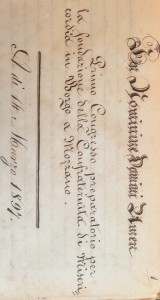 In Nomine Domini Amen
Primo Congresso preparatorio per
la fondazione della Confraternita di Miseri-
cordia in Borgo a Mozzano.
A dì 16 Maggio 1897.